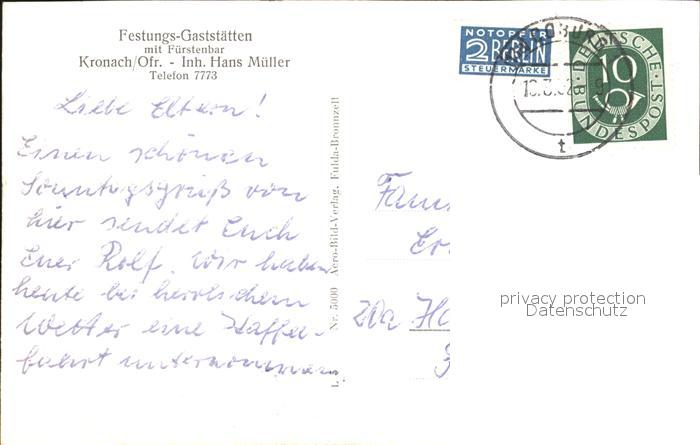 Festungs-Gaststätten
mit Fürstenbar
Kronach/Ofr. - Inh. Hans Müller
Telefon 7773
Liebe Eltern!
Einen schönen
Sonntagsgruß von
hier sendet Euch
Euer Rolf. Wir haben
heute bei herrlichem
Wetter eine Kaffee-
fahrt unternommen
L Nr. 5000 Aero-Bild-Verlag, Fulda-Bronnzell
NOTOPFER
2 BERLIN
STEUERMARKE
COBURG
t
DEUTSCHE
BUNDESPOST
10
Fam
20a Ha
privacy protection
Datenschutz